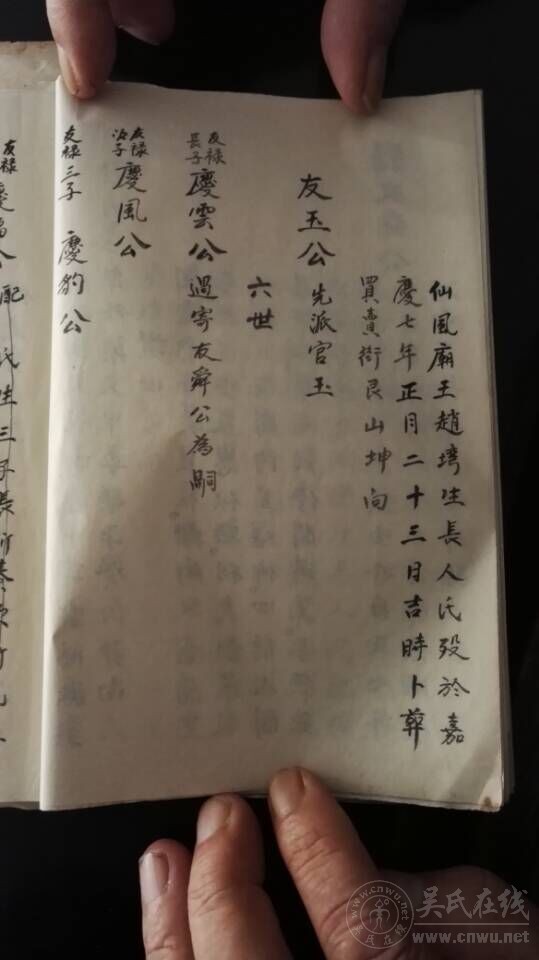 仙風廟王趙塆生長人氏殁於嘉
慶七年正月二十三日吉時卜葬
買賣街艮山坤向
友玉公 先派官玉
六世
友禄長子 慶雲公 過寄友舜公為嗣
友禄次子 慶風公
友禄三子 慶豹公
友禄
配 氏生三子長
吴氏在线
www.cnwu.net